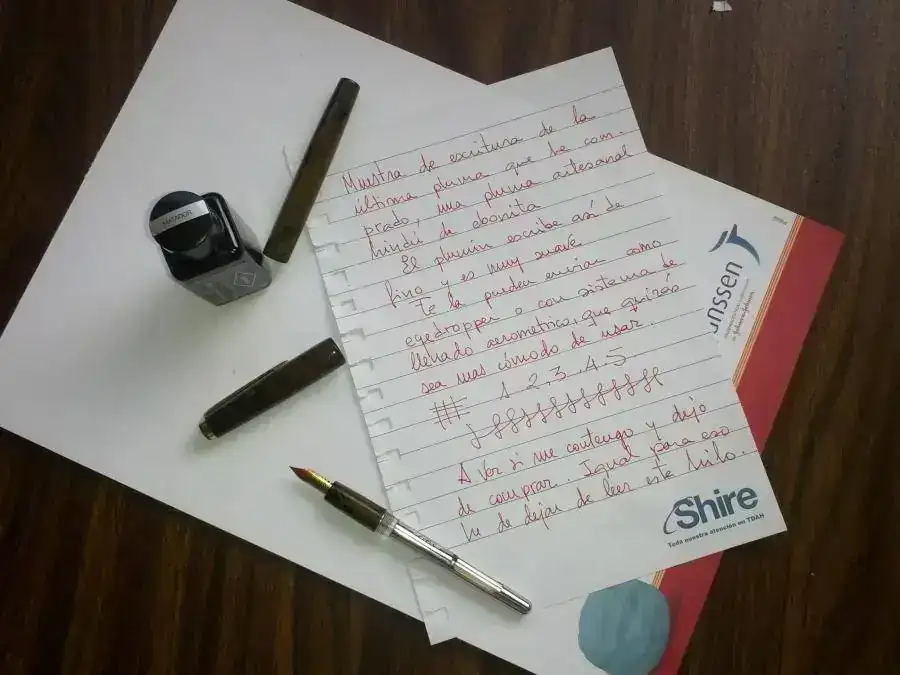 MATADOR
Muestra de escritura de la
última pluma que he com-
prado, una pluma artesanal
hindú de ebonita
El plumín escribe así de
fino y es muy suave
Te la pueden enviar como
eyedropper o con sistema de
llenado aerometrico, que quizás
sea mas cómodo de usar.
1 2, 3. 4. 5
A ver si me contengo y dejo
de comprar. Igual para eso
he de dejar de leer este hilo.
Shire
Toda nuestra atención en TDAH
anssen